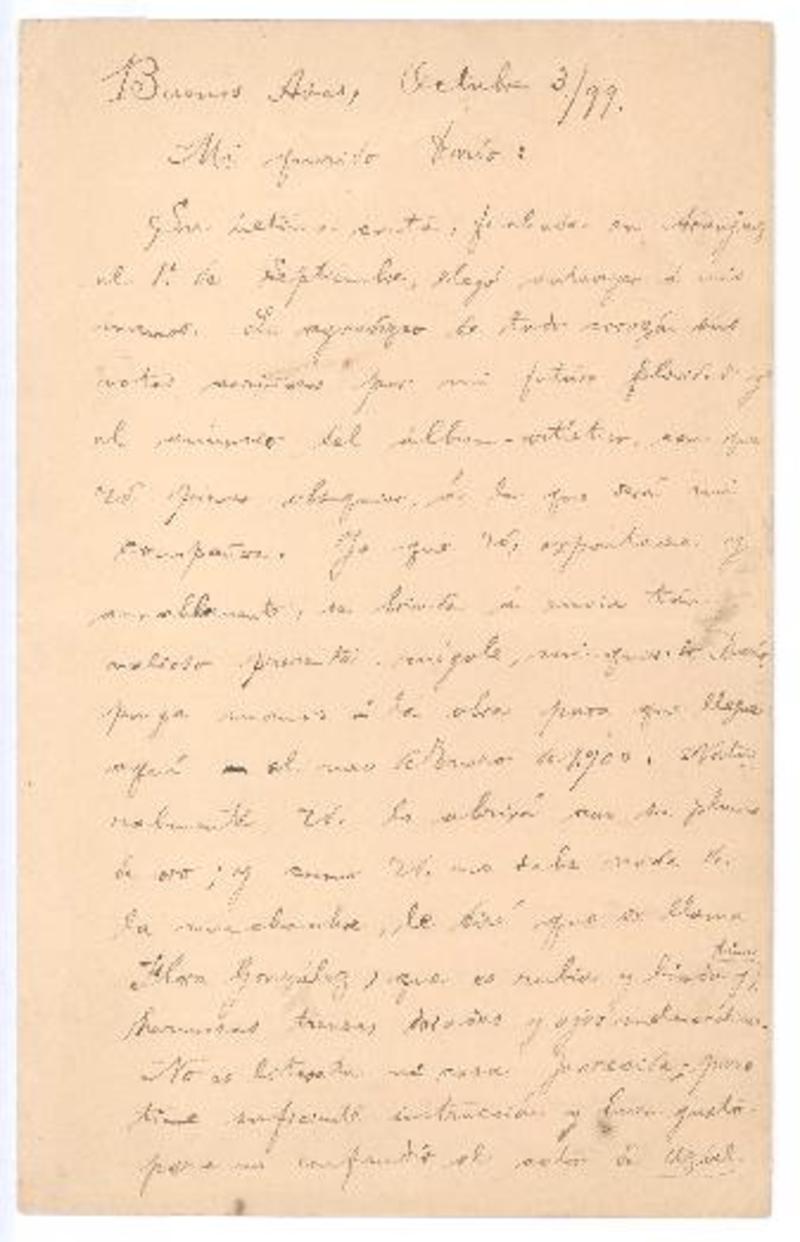 Buenos Aires, Octubre 3/99.
Mi querido Darío:
Su última carta, fechada en Aranjuez
el 1º de Septiembre, llegó antenoche á mis
manos. Le agradezco de todo corazón sus
votos cariñosos por mi futura felicidad y
el anuncio del álbum-artístico, con que
Vd piensa obsequiar, á la que será mi
compañera. Ya que Vd, espontánea y
amablemente, se brinda á enviar tan
valioso presente, mi querido Darío,
ponga manos á la obra para que llegue
aquí – el mes de Enero de 1900. Natu-
ralmente Vd. lo abrirá con su pluma
de oro; y como Vd. no sabe nada de
la muchacha, le diré que se llama
Flora González, que es rubia y linda y tiene
hermosas trenzas doradas y ojos
No es literata ni cosa parecida; pero
tiene suficiente instrucción y buen gusto
para no confundir el autor de Azul.